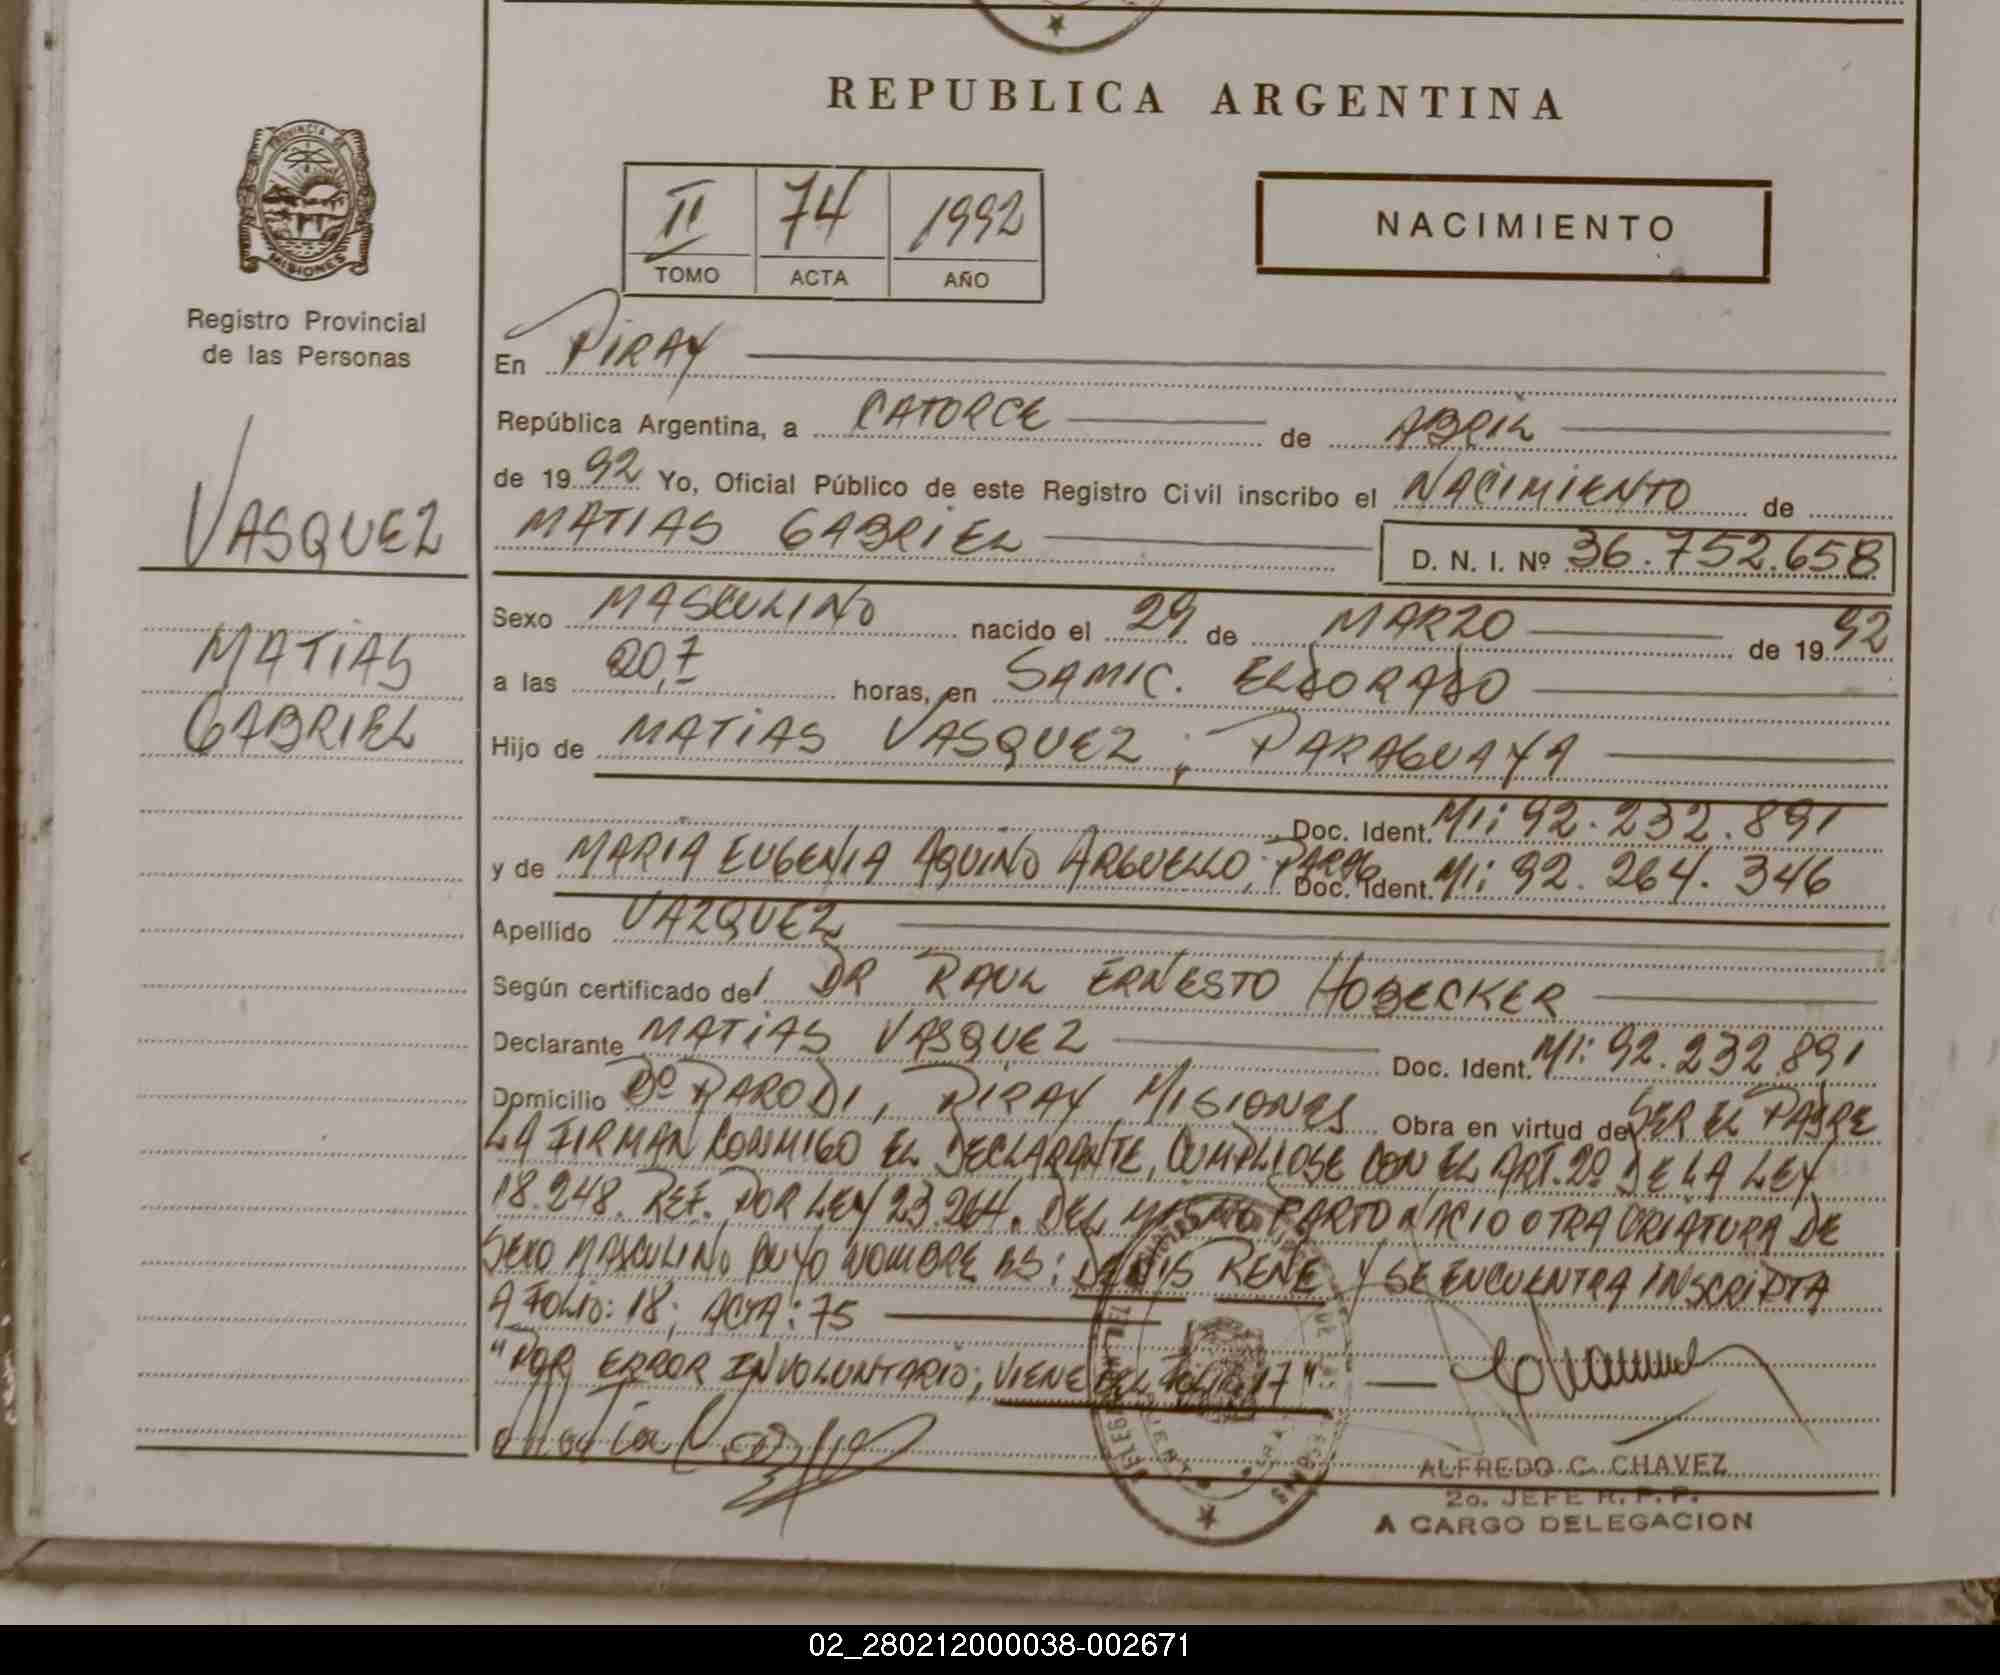 REPUBLICA ARGENTINA
PROVINCIA DE
MISIONES
Registro Provincial
de las Personas
VASQUEZ
MATIAS
GABRIEL
II 74 1992
TOMO ACTA AÑO
NACIMIENTO
En PIRAY
República Argentina, a CATORCE de ABRIL
de 1992 Yo, Oficial Público de este Registro Civil inscribo el NACIMIENTO de
MATIAS GABRIEL D. N. I. Nº 36.752.658
Sexo MASCULINO nacido el 29 de MARZO de 1992
a las 20,7 horas, en SAMIC. ELDORADO
Hijo de MATIAS VASQUEZ; PARAGUAYA
Doc. Ident. MI: 92.232.891
y de MARIA EUGENIA AQUINO ARGUELLO; PARAG Doc. Ident. MI: 92.264.346
Apellido VAZQUEZ
Según certificado del DR RAUL ERNESTO HOBECKER
Declarante MATIAS VASQUEZ Doc. Ident. MI: 92.232.891
Domicilio Bº PARODI, PIRAY MISIONES Obra en virtud de SER EL PADRE
LA FIRMAN CONMIGO EL DECLARANTE, CUMPLIOSE CON EL ART. 2º DE LA LEY
18.248. REF. POR LEY 23.264. DEL MISMO PARTO NACIO OTRA CRIATURA DE
SEXO MASCULINO CUYO NOMBRE ES: DENIS RENE Y SE ENCUENTRA INSCRIPTA
A FOLIO: 18; ACTA: 75
"POR ERROR INVOLUNTARIO; VIENE DEL FOLIO 17".
ALFREDO C. CHAVEZ
2o. JEFE R. P. P.
A CARGO DELEGACION
02_280212000038-002671